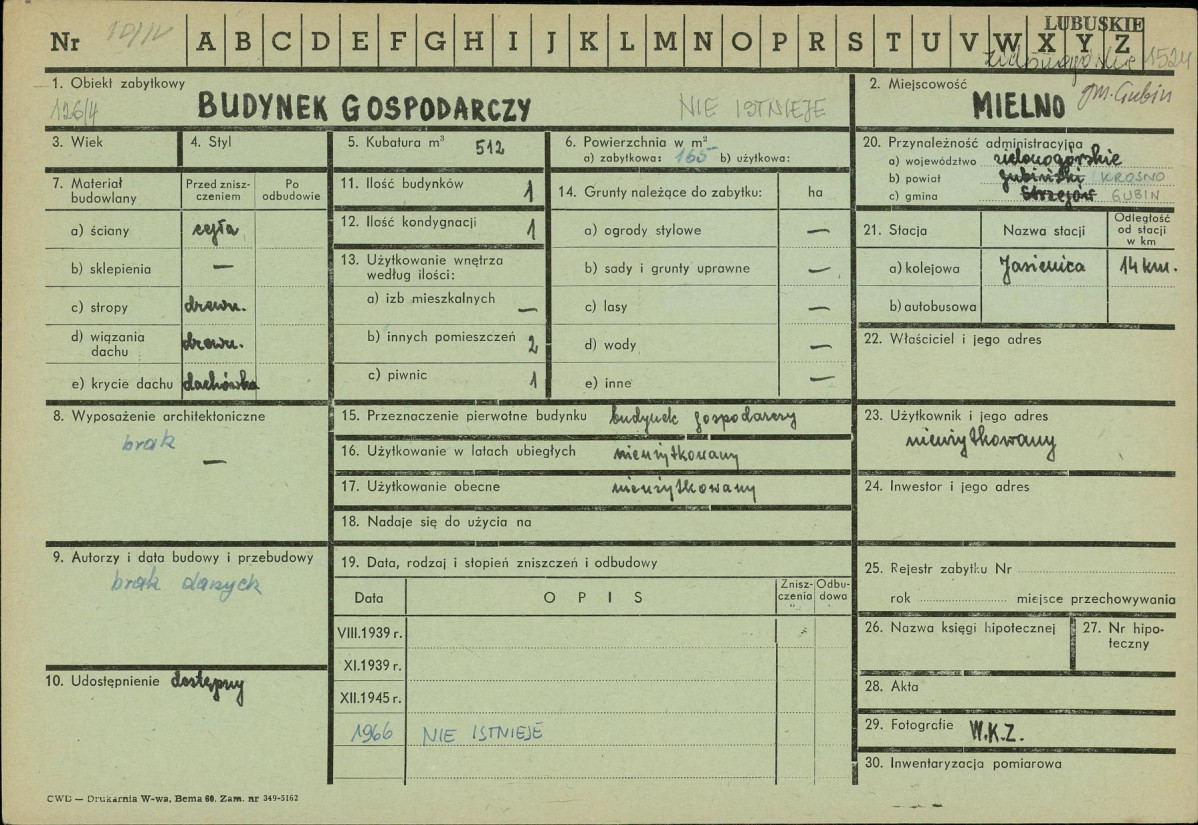 LUBUSKIE
Nr A B C D E F G H I J K L M N O P R S T U V W X Y Z
1524
1. Obiekt zabytkowy
126/4
BUDYNEK GOSPODARCZY
NIE ISTNIEJE
2. Miejscowość
MIELNO gm. Gubin
3. Wiek
4. Styl
5. Kubatura m³ 512
6. Powierzchnia w m²
a) zabytkowa: 165 b) użytkowa:
20. Przynależność administracyjna
a) województwo zielonogórskie
b) powiat gubiński KROSNO
c) gmina Strzegów GUBIN
7. Materiał budowlany
Przed znisz-
czeniem
Po
odbudowie
a) ściany cegła
b) sklepienia —
c) stropy drewn.
d) wiązania
dachu drewn.
e) krycie dachu dachówka
11. Ilość budynków 1
12. Ilość kondygnacji 1
13. Użytkowanie wnętrza
według ilości:
a) izb mieszkalnych —
b) innych pomieszczeń 2
c) piwnic 1
14. Grunty należące do zabytku: ha
a) ogrody stylowe —
b) sady i grunty uprawne —
c) lasy —
d) wody —
e) inne —
21. Stacja
Nazwa stacji
Odległość
od stacji
w km
a) kolejowa Jasienica 14 km.
b) autobusowa
22. Właściciel i jego adres
8. Wyposażenie architektoniczne
brak
—
15. Przeznaczenie pierwotne budynku budynek gospodarczy
16. Użytkowanie w latach ubiegłych nieużytkowany
17. Użytkowanie obecne nieużytkowany
18. Nadaje się do użycia na
23. Użytkownik i jego adres
nieużytkowany
24. Inwestor i jego adres
9. Autorzy i data budowy i przebudowy
brak danych
19. Data, rodzaj i stopień zniszczeń i odbudowy
Data
O P I S
Znisz-
czenia
Odbu-
dowa
VIII.1939 r.
XI.1939 r.
XII.1945 r.
1966 NIE ISTNIEJE
10. Udostępnienie dostępny
25. Rejestr zabytku Nr
rok miejsce przechowywania
26. Nazwa księgi hipotecznej
27. Nr hipo-
teczny
28. Akta
29. Fotografie W.K.Z.
30. Inwentaryzacja pomiarowa
CWD — Drukarnia W-wa, Bema 60. Zam. nr 349-5162